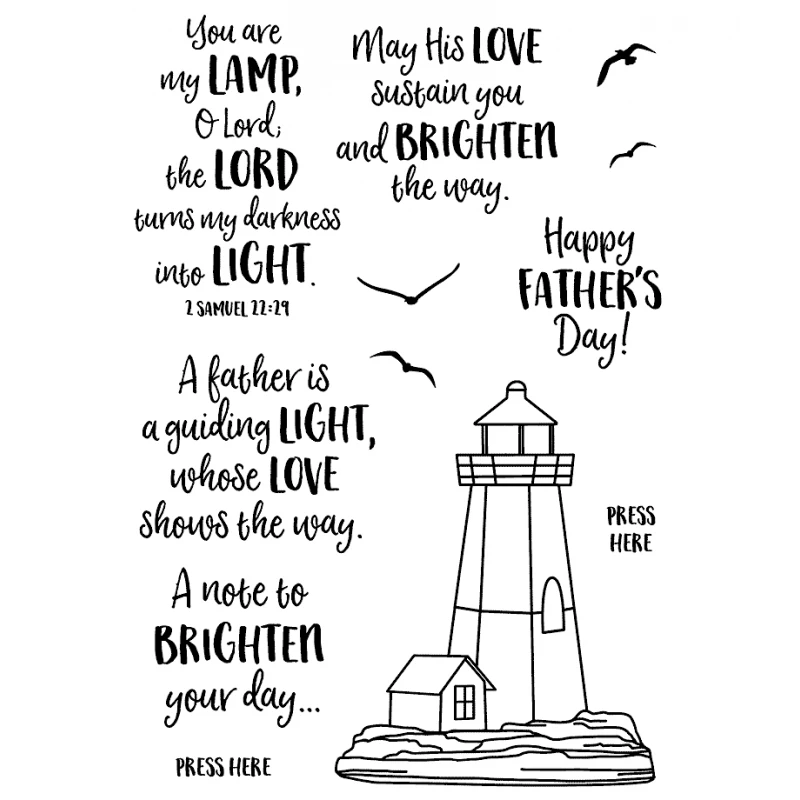 You are
my LAMP,
O Lord;
the LORD
turns my darkness
into LIGHT.
2 SAMUEL 22:29
May His LOVE
sustain you
and BRIGHTEN
the way.
Happy
FATHER'S
Day!
A father is
a guiding LIGHT,
whose LOVE
shows the way.
PRESS
HERE
A note to
BRIGHTEN
your day...
PRESS HERE